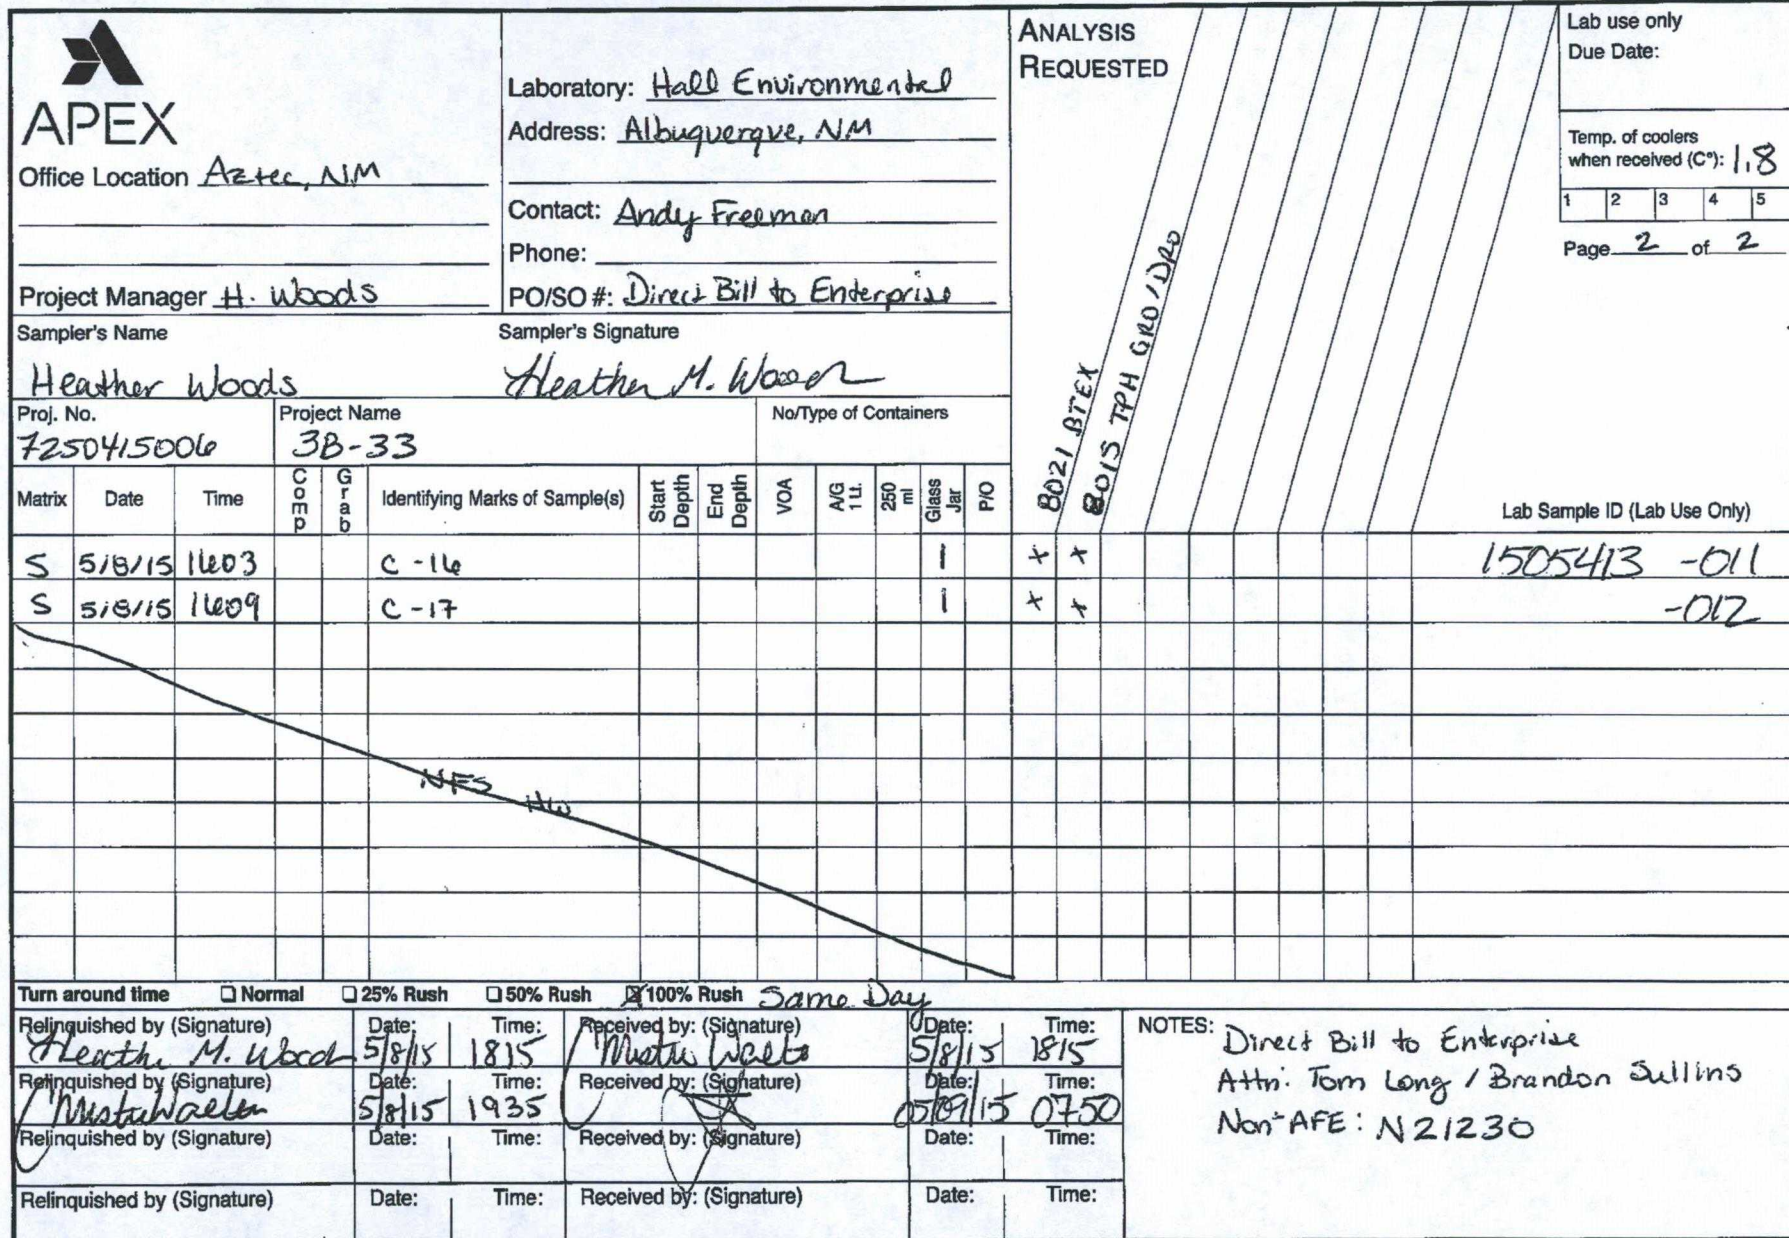 APEX
Office Location Aztec, NM
Project Manager H. Woods
Laboratory: Hall Environmental
Address: Albuquerque, NM
Contact: Andy Freeman
Phone:
PO/SO #: Direct Bill to Enterprise
ANALYSIS
REQUESTED
8021 BTEX
8015 TPH GRO / DRO
Lab use only
Due Date:
Temp. of coolers
when received (C°): 1.8
1 2 3 4 5
Page 2 of 2
Sampler's Name
Heather Woods
Sampler's Signature
Heather M. Woods
Proj. No.
7250415006
Project Name
3B-33
No/Type of Containers
Matrix Date Time Comp Grab Identifying Marks of Sample(s) Start Depth End Depth VOA A/G 1 Lt. 250 ml Glass Jar P/O Lab Sample ID (Lab Use Only)
S 5/8/15 1603 C-16 1 x x 1505413 -011
S 5/8/15 1609 C-17 1 x x -012
NFS HW
Turn around time Normal 25% Rush 50% Rush X 100% Rush Same Day
Relinquished by (Signature) Date: Time: Received by: (Signature) Date: Time:
Heather M. Woods 5/8/15 1815 5/8/15 1815
Relinquished by (Signature) Date: Time: Received by: (Signature) Date: Time:
5/8/15 1935 05/09/15 0750
Relinquished by (Signature) Date: Time: Received by: (Signature) Date: Time:
Relinquished by (Signature) Date: Time: Received by: (Signature) Date: Time:
NOTES: Direct Bill to Enterprise
Attn: Tom Long / Brandon Sullins
Non-AFE: N21230